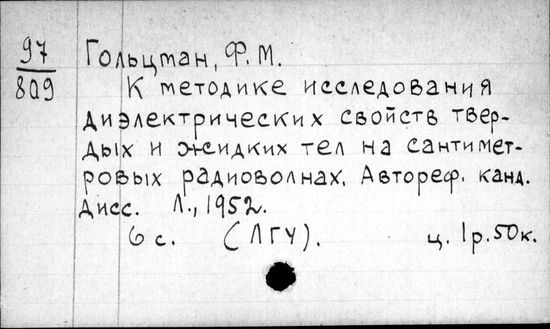 97
8а9
Гольцман, Ф.М.
К методике исследования
диэлектрических свойств твер-
дых и жидких тел на сантимет-
ровых радиоволнах. Автореф. канд.
дисс. Л., 1952.
6 с. (ЛГУ). ц. 1р.50к.